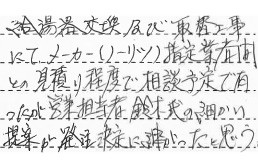 給湯器交換及び取替工事
にてメーカー(ノーリツ)指定業者間
との見積り程度で相談予定で有
ったが営業担当者鈴木氏の細かい
提案が発注決定に繋がったと思う。